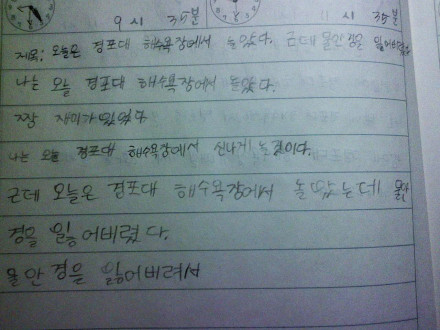 9시 35분 11시 35분
제목: 오늘은 경포대 해수욕장에서 놀았다. 근데 물안경을 잃어버렸다
나는 오늘 경포대 해수욕장에서 놀았다.
짱 재미가있었다
나는 오늘 경포대 해수욕장에서 신나게 논것이다.
근데 오늘은 경포대 해수욕장에서 놀았는데 물안
경을 잃어버렸다.
물안경을 잃어버려서